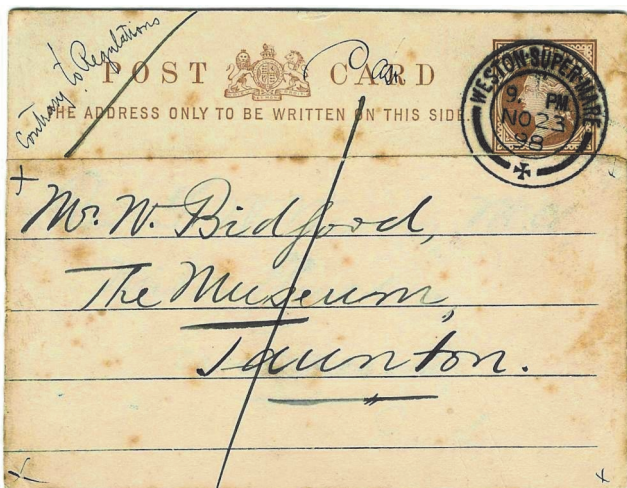 Contrary to Regulations
POST CARD
THE ADDRESS ONLY TO BE WRITTEN ON THIS SIDE.
WESTON-SUPER-MARE
9. PM
NO 23
98
Mr. W. Bidgood,
The Museum,
Taunton.